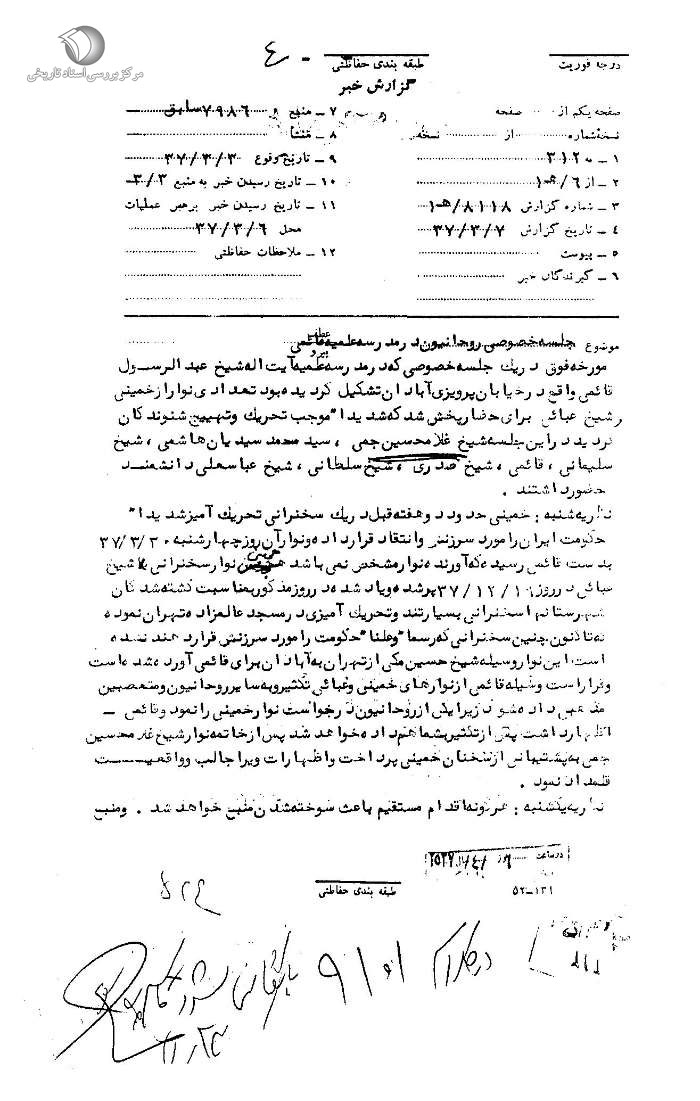 مرکز بررسی اسناد تاریخی
درجه فوریت
طبقه بندی حفاظتی
گزارش خبر
صفحه یکم از صفحه
نسخه شماره از نسخه
۱ ـ به ۳۱۲
۲ ـ از ۶/هـ۱
۳ ـ شماره گزارش ۸۱۱۸/هـ۱
۴ ـ تاریخ گزارش ۳۷/۳/۷
۵ ـ پیوست
۶ ـ گیرندگان خبر
۷ ـ منبع ۷۹۸۶ سابق
۸ ـ منشأ
۹ ـ تاریخ وقوع ۳۷/۳/۳
۱۰ ـ تاریخ رسیدن خبر به منبع ۳/۳
۱۱ ـ تاریخ رسیدن خبر برهبر عملیات
محل ۳۷/۳/۶
۱۲ ـ ملاحظات حفاظتی
موضوع جلسه خصوصی روحانیون در مدرسه علمیه قائمی
مورخه فوق در یک جلسه خصوصی که در مدرسه علمیه آیت اله شیخ عبدالرسول
قائمی واقع در خیابان پرویزی آبادان تشکیل گردیده بود تعدادی نوار از خمینی
و شیخ عبائی برای حضار پخش شد که شدیدا" موجب تحریک و تهییج شنوندگان
گردید در این جلسه شیخ غلامحسین جمی ، سید محمد سیدیان هاشمی ، شیخ
سلیمانی ، قائمی ، شیخ صدری ، شیخ سلطانی ، شیخ عباسعلی دانشمند
حضور داشتند .
نظریه شنبه : خمینی حدود دو هفته قبل در یک سخنرانی تحریک آمیز شدیدا"
حکومت ایران را مورد سرزنش و انتقاد قرار داده و نوار آن روز چهارشنبه ۳۷/۳/۳۰
بدست قائمی رسیده که آورنده نوار مشخص نمی باشد نوار سخنرانی شیخ
عبائی در روز ۳۷/۱۲/۱۹ پر شده و یاد شده در روز مذکور بمناسبت کشته شدگان
شهرستانها سخنرانی بسیار تند و تحریک آمیزی در مسجد تهران نموده
که تاکنون چنین سخنرانی که رسما" و علنا" حکومت را مورد سرزنش قرار دهند نشده
است این نوار وسیله شیخ حسین مکی از تهران به آبادان برای قائمی آورده شده است
و قرار است وسیله قائمی از نوارهای خمینی و عبائی تکثیر و به سایر روحانیون و متعصبین
مذهبی داده شود زیرا یکی از روحانیون درخواست نوار خمینی را نمود و قائمی ـ
اظهار داشت پس از تکثیر بشما هم داده خواهد شد پس از خاتمه نوار شیخ غلامحسین
جمی به پشتیبانی از سخنان خمینی پرداخت و اظهارات ویرا جالب و واقعیت
قلمداد نمود .
نظریه یکشنبه : هرگونه اقدام مستقیم باعث سوخته شدن منبع خواهد شد . و منبع
در ساعت روز
طبقه بندی حفاظتی
۵۲-۱۳۱